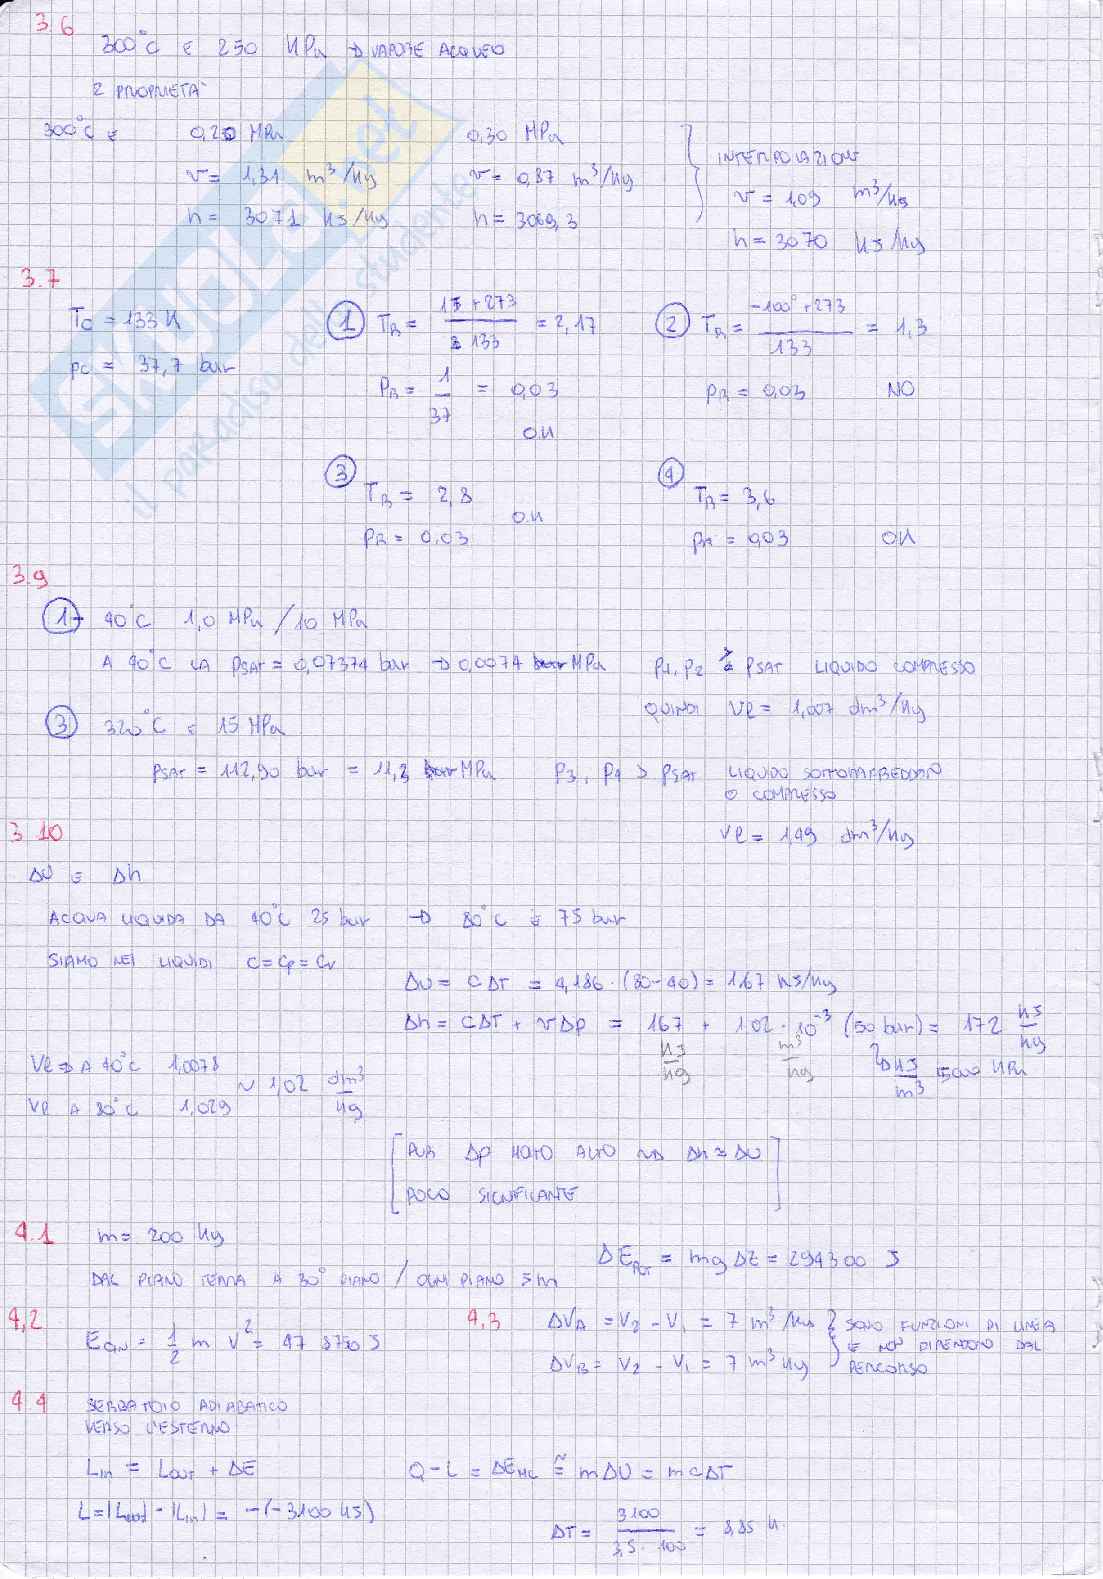 3.6
300°C e 250 KPa → VAPORE ACQUEO
2 PROPRIETA'
300°C e 0,20 MPa 0,30 MPa
v = 1,31 m³/kg v = 0,87 m³/kg INTERPOLAZIONE
h = 3071 kJ/kg h = 3069,3 v = 1,09 m³/kg
h = 3070 kJ/kg
3.7
Tc = 133 K
pc = 37,7 bar
① TR = (15 + 273)/133 = 2,17
PR = 1/37 = 0,03
OK
② TR = (-100° + 273)/133 = 1,3
PR = 0,03 NO
③ TR = 2,8
PR = 0,03 OK
④ TR = 3,6
PR = 0,03 OK
3.9
① 40°C 1,0 MPa / 10 MPa
A 40°C LA pSAT = 0,07374 bar → 0,0074 MPa p1, p2 > pSAT LIQUIDO COMPRESSO
QUINDI Vl = 1,007 dm³/kg
③ 320°C e 15 MPa
pSAT = 112,90 bar = 11,3 MPa p3, p4 > pSAT LIQUIDO SOTTORAFFREDDATO
O COMPRESSO
Vl = 1,49 dm³/kg
3 10
ΔU e Δh
ACQUA LIQUIDA DA 40°C 25 bar → 80°C e 75 bar
SIAMO NEI LIQUIDI C = Cp = Cv
ΔU = CΔT = 4,186 · (80-40) = 167 kJ/kg
Δh = CΔT + vΔp = 167 + 1,02 · 10⁻³ (50 bar) = 172 kJ/kg
kJ/kg m³/kg kJ/m³ 5000 KPa
Vl → A 40°C 1,0078
Vl A 80°C 1,029
~ 1,02 dm³/kg
PUR Δp MOLTO ALTO MA Δh ≃ ΔU
POCO SIGNIFICANTE
4.1
m = 200 kg
DAL PIANO TERRA A 30° PIANO / OGNI PIANO 5m
ΔEPOT = mgΔZ = 294300 J
4,2
ECIN = 1/2 m v² = 478750 J
4,3
ΔVA = V2 - V1 = 7 m³/kg SONO FUNZIONI DI LINEA
ΔVB = V2 - V1 = 7 m³ kg E NON DIPENDONO DAL
PERCORSO
4.4
SERBATOIO ADIABATICO
VERSO L'ESTERNO
Lin = Lout + ΔE
Q - L = ΔEMC ≅ mΔU = mcΔT
L = |Lout| - |Lin| = -(-3100 kJ)
ΔT = 3100/(3,5 · 100) = 8,85 K
SKUOLA.net
il paradiso dello studente